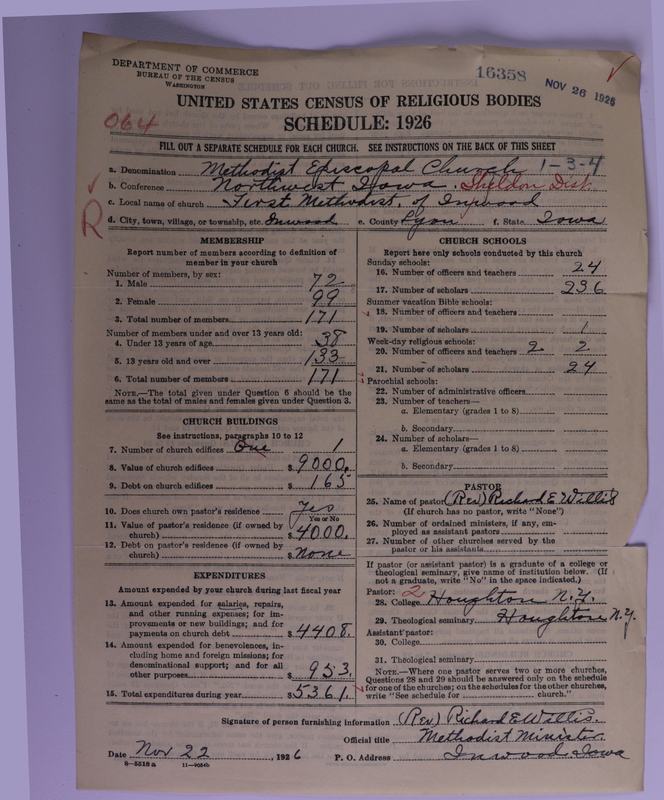 DEPARTMENT OF COMMERCE
BUREAU OF THE CENSUS
WASHINGTON
16358
NOV 26 1926
UNITED STATES CENSUS OF RELIGIOUS BODIES
064
SCHEDULE: 1926
FILL OUT A SEPARATE SCHEDULE FOR EACH CHURCH. SEE INSTRUCTIONS ON THE BACK OF THIS SHEET
a. Denomination Methodist Episcopal Church 1-3-4
b. Conference Northwest Iowa. Sheldon Dist.
c. Local name of church First Methodist, of Inwood
R
d. City, town, village, or township, etc. Inwood e. County Lyon f. State Iowa
MEMBERSHIP
Report number of members according to definition of
member in your church
Number of members, by sex:
1. Male 72
2. Female 99
3. Total number of members 171
Number of members under and over 13 years old:
4. Under 13 years of age 38
5. 13 years old and over 133
6. Total number of members 171
NOTE.—The total given under Question 6 should be the
same as the total of males and females given under Question 3.
CHURCH BUILDINGS
See instructions, paragraphs 10 to 12
7. Number of church edifices One 1
8. Value of church edifices $ 9000.
9. Debt on church edifices $ 165
10. Does church own pastor's residence Yes
Yes or No
11. Value of pastor's residence (if owned by
church) $ 4000.
12. Debt on pastor's residence (if owned by
church) $ None
EXPENDITURES
Amount expended by your church during last fiscal year
13. Amount expended for salaries, repairs,
and other running expenses; for im-
provements or new buildings; and for
payments on church debt $ 4408.
14. Amount expended for benevolences, in-
cluding home and foreign missions; for
denominational support; and for all
other purposes 953.
15. Total expenditures during year $ 5361.
CHURCH SCHOOLS
Report here only schools conducted by this church
Sunday schools:
16. Number of officers and teachers 24
17. Number of scholars 236
Summer vacation Bible schools:
18. Number of officers and teachers
19. Number of scholars 1
Week-day religious schools:
20. Number of officers and teachers 2 2
21. Number of scholars 24
Parochial schools:
22. Number of administrative officers
23. Number of teachers—
a. Elementary (grades 1 to 8)
b. Secondary
24. Number of scholars—
a. Elementary (grades 1 to 8)
b. Secondary
PASTOR
25. Name of pastor (Rev) Richard E Willis
(If church has no pastor, write "None")
26. Number of ordained ministers, if any, em-
ployed as assistant pastors
27. Number of other churches served by the
pastor or his assistants
If pastor (or assistant pastor) is a graduate of a college or
theological seminary, give name of institution below. (If
not a graduate, write "No" in the space indicated.)
Pastor: 2
28. College Houghton N.Y.
29. Theological seminary Houghton N.Y.
Assistant pastor:
30. College
31. Theological seminary
NOTE.—Where one pastor serves two or more churches,
Questions 28 and 29 should be answered only on the schedule
for one of the churches; on the schedules for the other churches,
write "See schedule for church."
Signature of person furnishing information (Rev) Richard E Willis.
Official title Methodist Minister
Date Nov 22, 1926 P. O. Address Inwood. Iowa
8-5518a 11-9054b